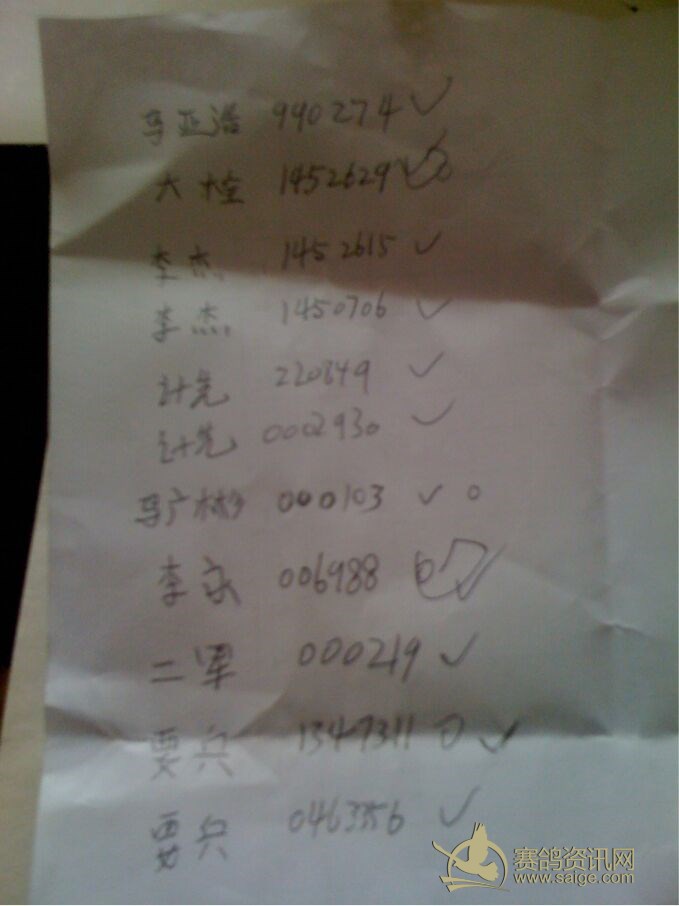 马亚浩 990274 ✓
大 1452629 ✓
李杰 1452615 ✓
李杰 1450706 ✓
计先 220849 ✓
计先 0002930 ✓
马广彬 000103 ✓ 0
李 006988 0 ✓
二军 000219 ✓
贾兵 1347311 0 ✓
贾兵 046356 ✓
赛鸽资讯网
www.saige.com